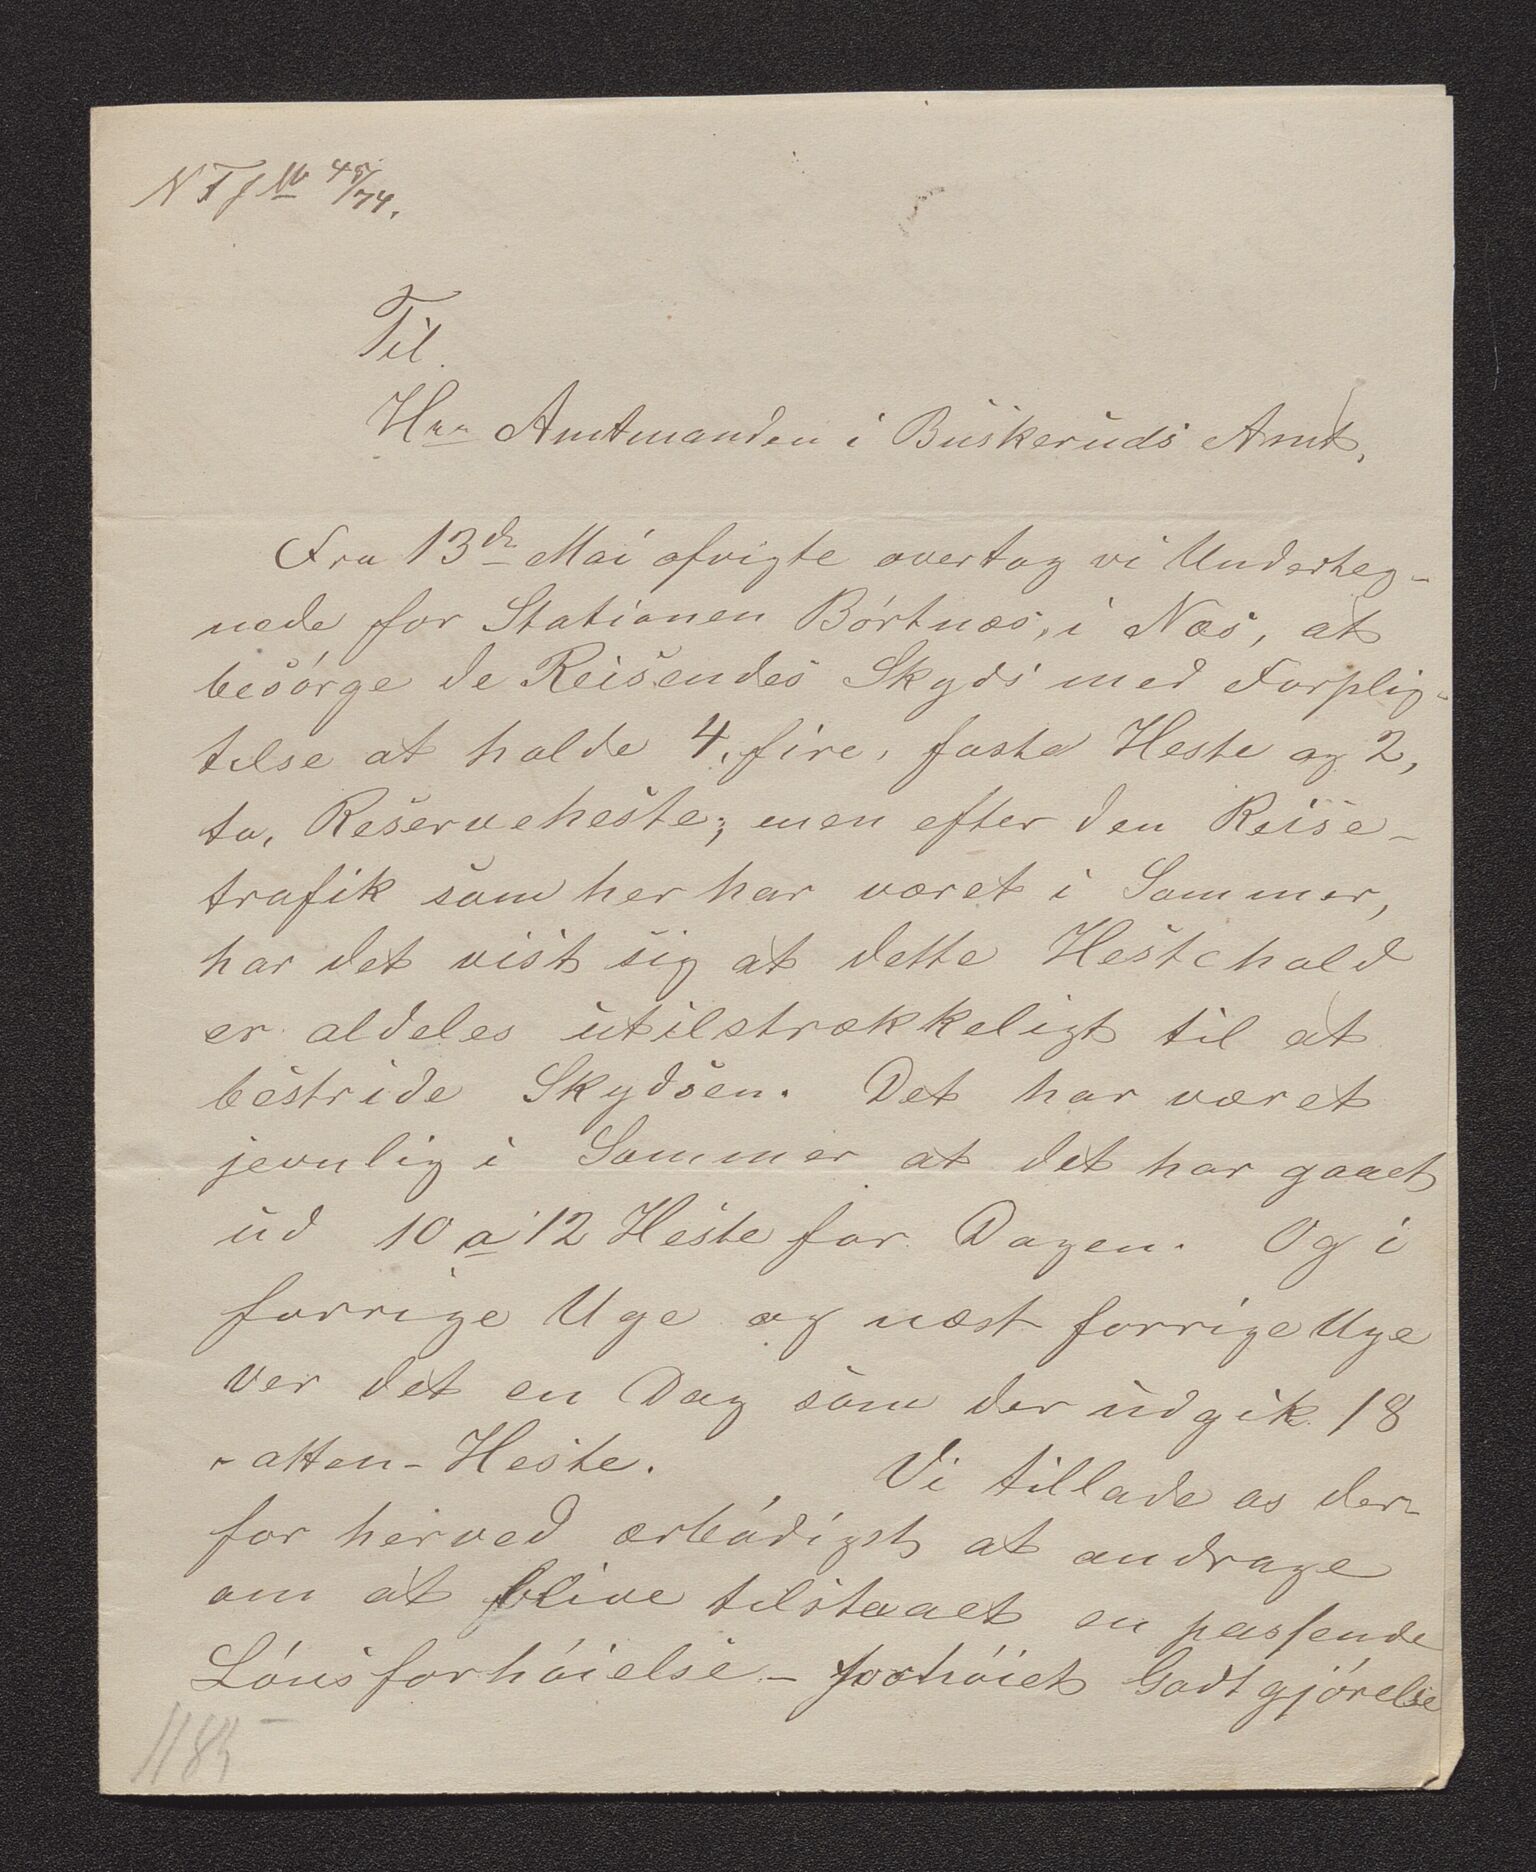 Til
Hrr Amtmanden i Buskeruds Amt,
Fra 13de Mai afvigte overtog vi Underteg-
nede for Stationen Børtnæs, i Næs, at
besørge de Reisendes Skyds med Forplig-
telse at holde 4, fire, faste Heste og 2,
to, Reserveheste; men efter den Reise-
trafik som her har været i Sommer,
har det vist sig at dette Hestehold
er aldeles utilstrækkeligt til at
bestride Skydsen. Det har været
jevnlig i Sommer at det har gaaet
ud 10 a 12 Heste for Dagen. Og i
forrige Uge og næst forrige Uge
ver det en Dag som der udgik 18
- atten - Heste. Vi tillade os der-
for herved ærbødigst at andrage
om at blive tilstaaet en passende
Lønsforhøielse - forhøiet Godtgjørelse
1185